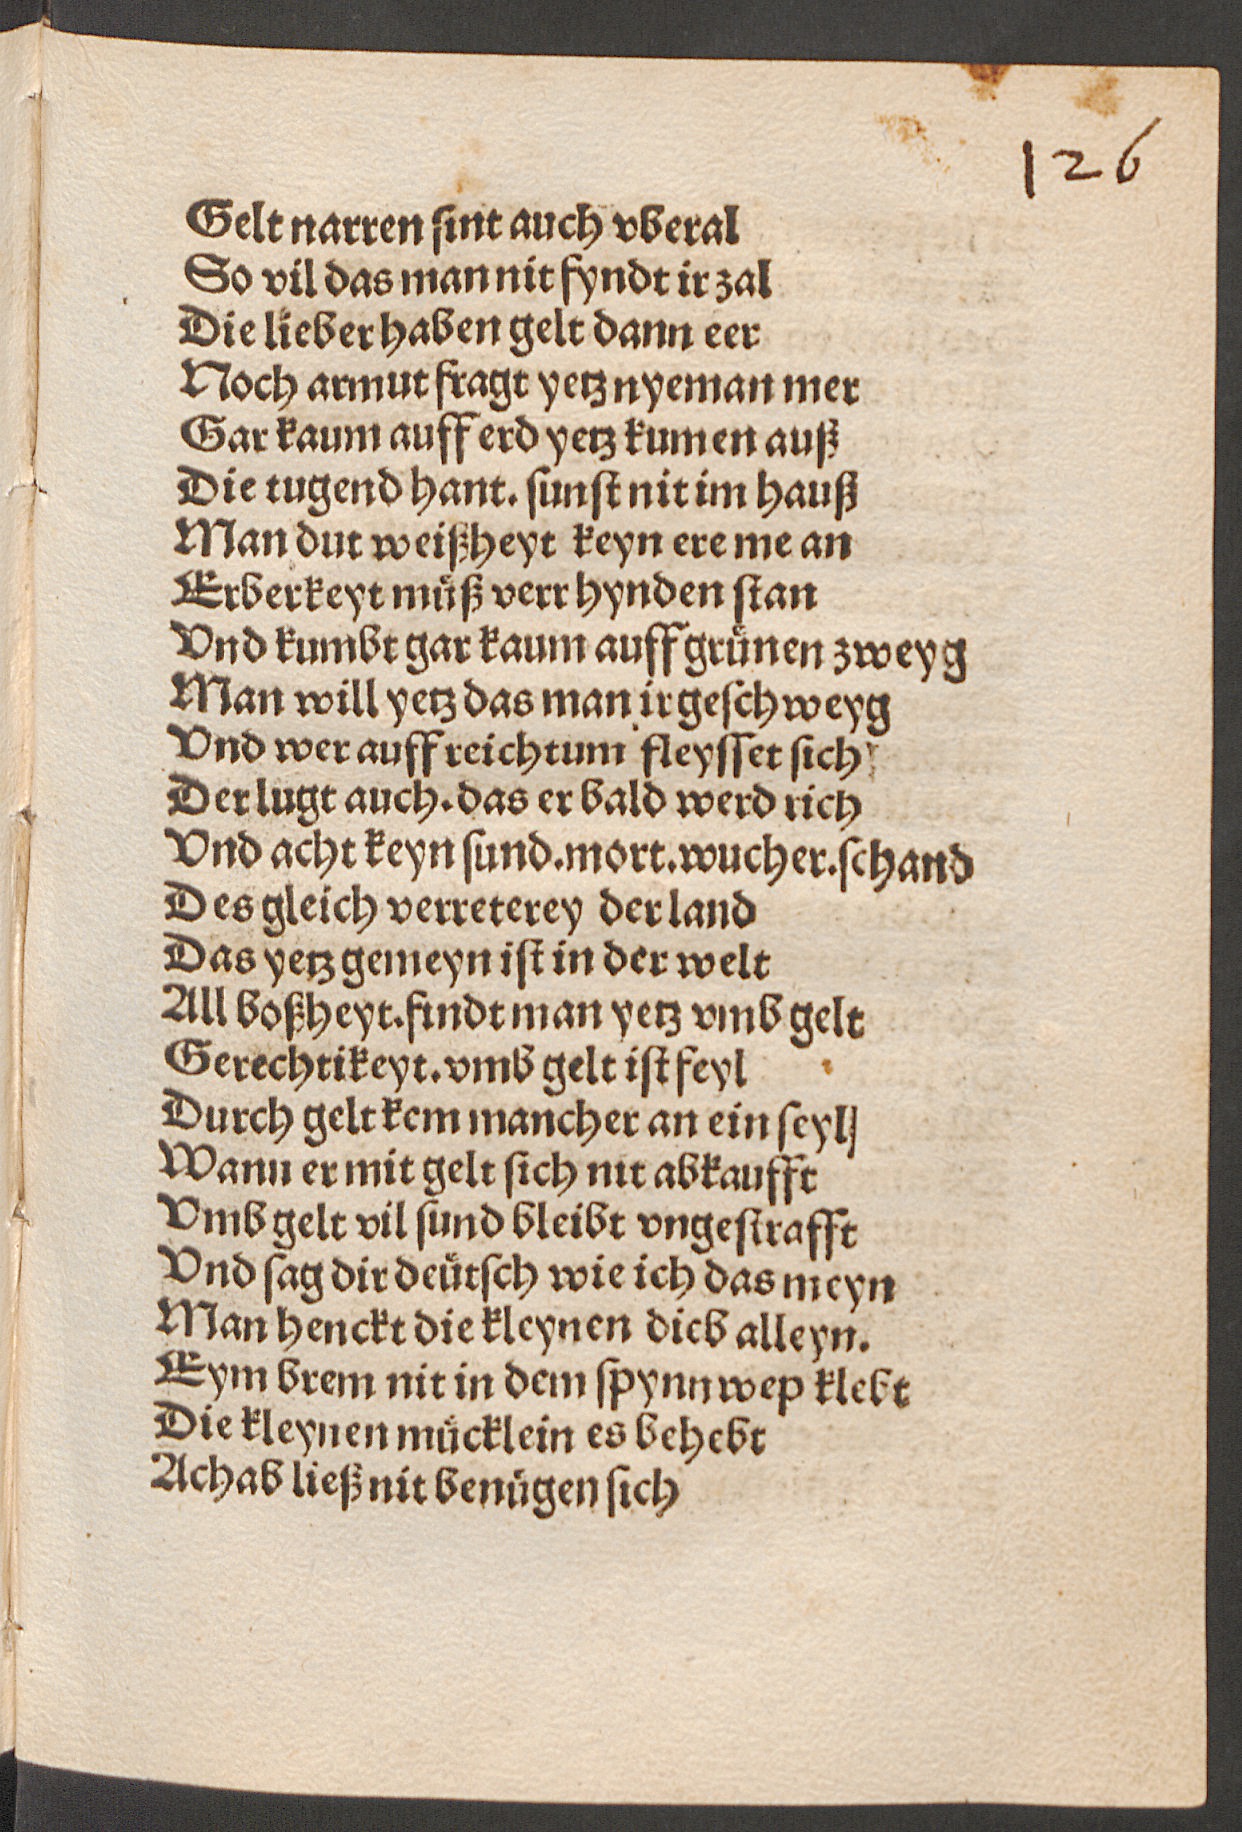 126
Gelt narren sint auch vberal
So vil das man nit fyndt ir zal
Die lieber haben gelt dann eer
Noch armut fragt yetz nyeman mer
Gar kaum auff erd yetz kumen auß
Die tugend hant. sunst nit im hauß
Man dut weißheyt keyn ere me an
Erberkeyt můß verr hynden stan
Vnd kumbt gar kaum auff grünen zweyg
Man will yetz das man ir geschweyg
Vnd wer auff reichtum fleysset sich
Der lugt auch. das er bald werd rich
Vnd acht keyn sund. mort. wucher. schand
Des gleich verreterey der land
Das yetz gemeyn ist in der welt
All boßheyt. findt man yetz vmb gelt
Gerechtikeyt. vmb gelt ist feyl
Durch gelt kem mancher an ein seyl
Wann er mit gelt sich nit abkaufft
Vmb gelt vil sund bleibt vngestrafft
Vnd sag dir deütsch wie ich das meyn
Man henckt die kleynen dieb alleyn.
Eym brem nit in dem spynnwep klebt
Die kleynen mücklein es behebt
Achab ließ nit benügen sich